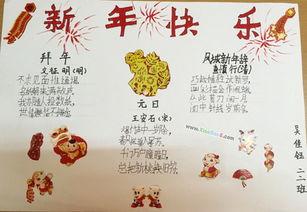 新年快乐
拜年
文征明(明)
不求见面惟通谒
名纸朝来满敝庐
我亦随人投数纸
世情嫌简不嫌虚
元日
王安石(宋)
爆竹声中一岁除
春风送暖入屠苏
千门万户曈曈日
总把新桃换旧符
凤城新年辞
查慎行(清)
巧裁幡胜试新罗
画彩描金作闹蛾
从此剪刀闲一月
闺中针线岁前多
吴佳钰
二2班